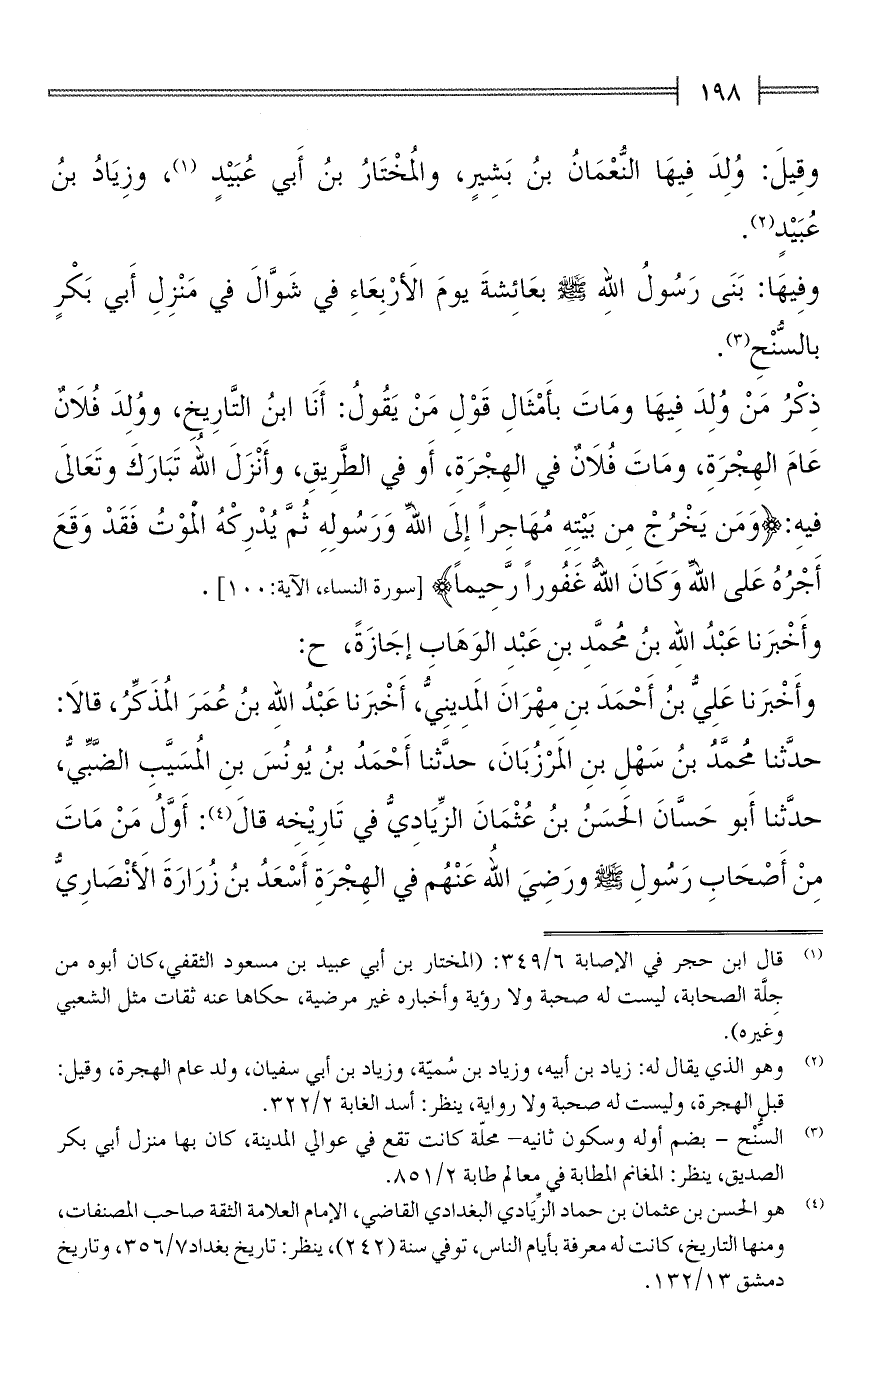 ١٩٨
وقِيلَ: وُلِدَ فِيهَا النُّعْمَانُ بنُ بَشِيرٍ، والمُخْتَارُ بنُ أَبي عُبَيْدٍ (١)، وزِيَادُ بنُ
عُبَيْدٍ(٢).
وفِيهَا: بَنَى رَسُولُ اللهِ ﷺ بعَائِشةَ يومَ الأَرْبعَاءِ في شَوَّالَ في مَنْزِلِ أَبي بَكْرٍ
بالسُّنْحِ(٣).
ذِكْرُ مَنْ وُلِدَ فِيهَا ومَاتَ بأَمْثَالِ قَوْلِ مَنْ يَقُولُ: أَنَا ابنُ التَّارِيخِ، ووُلِدَ فُلَانٌ
عَامَ الهِجْرَةِ، ومَاتَ فُلَانٌ في الهِجْرَةِ، أَو في الطَّرِيقِ، وأَنْزَلَ اللهُ تَبَارَكَ وتَعَالَى
فيهِ: ﴿وَمَن يَخْرُجْ مِن بَيْتِهِ مُهَاجِراً إِلَى اللهِ وَرَسُولِهِ ثُمَّ يُدْرِكْهُ الْمَوْتُ فَقَدْ وَقَعَ
أَجْرُهُ عَلى اللهِ وَكَانَ اللهُ غَفُوراً رَّحِيماً﴾ [سورة النساء، الآية: ١٠٠] .
وأَخْبَرَنا عَبْدُ اللهِ بنُ مُحمَّدِ بنِ عَبْدِ الوَهَابِ إجَازَةً، ح:
وأَخْبَرَنا عَلِيُّ بنُ أَحْمَدَ بنِ مِهْرَانَ المَدِينيُّ، أَخْبَرَنا عَبْدُ اللهِ بنُ عُمَرَ المُذَكِّرُ، قالَا:
حدَّثنا مُحمَّدُ بنُ سَهْلِ بنِ المَرْزُبَانَ، حدَّثنا أَحْمَدُ بنُ يُونُسَ بنِ المُسَيَّبِ الضَّبِّيُّ،
حدَّثنا أَبو حَسَّانَ الحَسَنُ بنُ عُثْمَانَ الزِّيَادِيُّ في تَارِيْخِه قالَ(٤): أَوَّلُ مَنْ مَاتَ
مِنْ أَصْحَابِ رَسُولِ ﷺ ورَضِيَ اللهُ عَنْهُم في الهِجْرَةِ أَسْعَدُ بنُ زُرَارَةَ الأَنْصَارِيُّ
(١) قال ابن حجر في الإصابة ٣٤٩/٦: (المختار بن أبي عبيد بن مسعود الثقفي،كان أبوه من
جِلَّة الصحابة، ليست له صحبة ولا رؤية وأخباره غير مرضية، حكاها عنه ثقات مثل الشعبي
وغيره).
(٢) وهو الذي يقال له: زياد بن أبيه، وزياد بن سُميّة، وزياد بن أبي سفيان، ولد عام الهجرة، وقيل:
قبل الهجرة، وليست له صحبة ولا رواية، ينظر: أسد الغابة ٣٢٢/٢.
(٣) السُّنْح – بضم أوله وسكون ثانيه– محلّة كانت تقع في عوالي المدينة، كان بها منزل أبي بكر
الصديق، ينظر: المغانم المطابة في معالم طابة ٨٥١/٢.
(٤) هو الحسن بن عثمان بن حماد الزِّيَادي البغدادي القاضي، الإمام العلامة الثقة صاحب المصنفات،
ومنها التاريخ، كانت له معرفة بأيام الناس، توفي سنة (٢٤٢)، ينظر: تاريخ بغداد٣٥٦/٧، وتاريخ
دمشق ١٣٢/١٣.